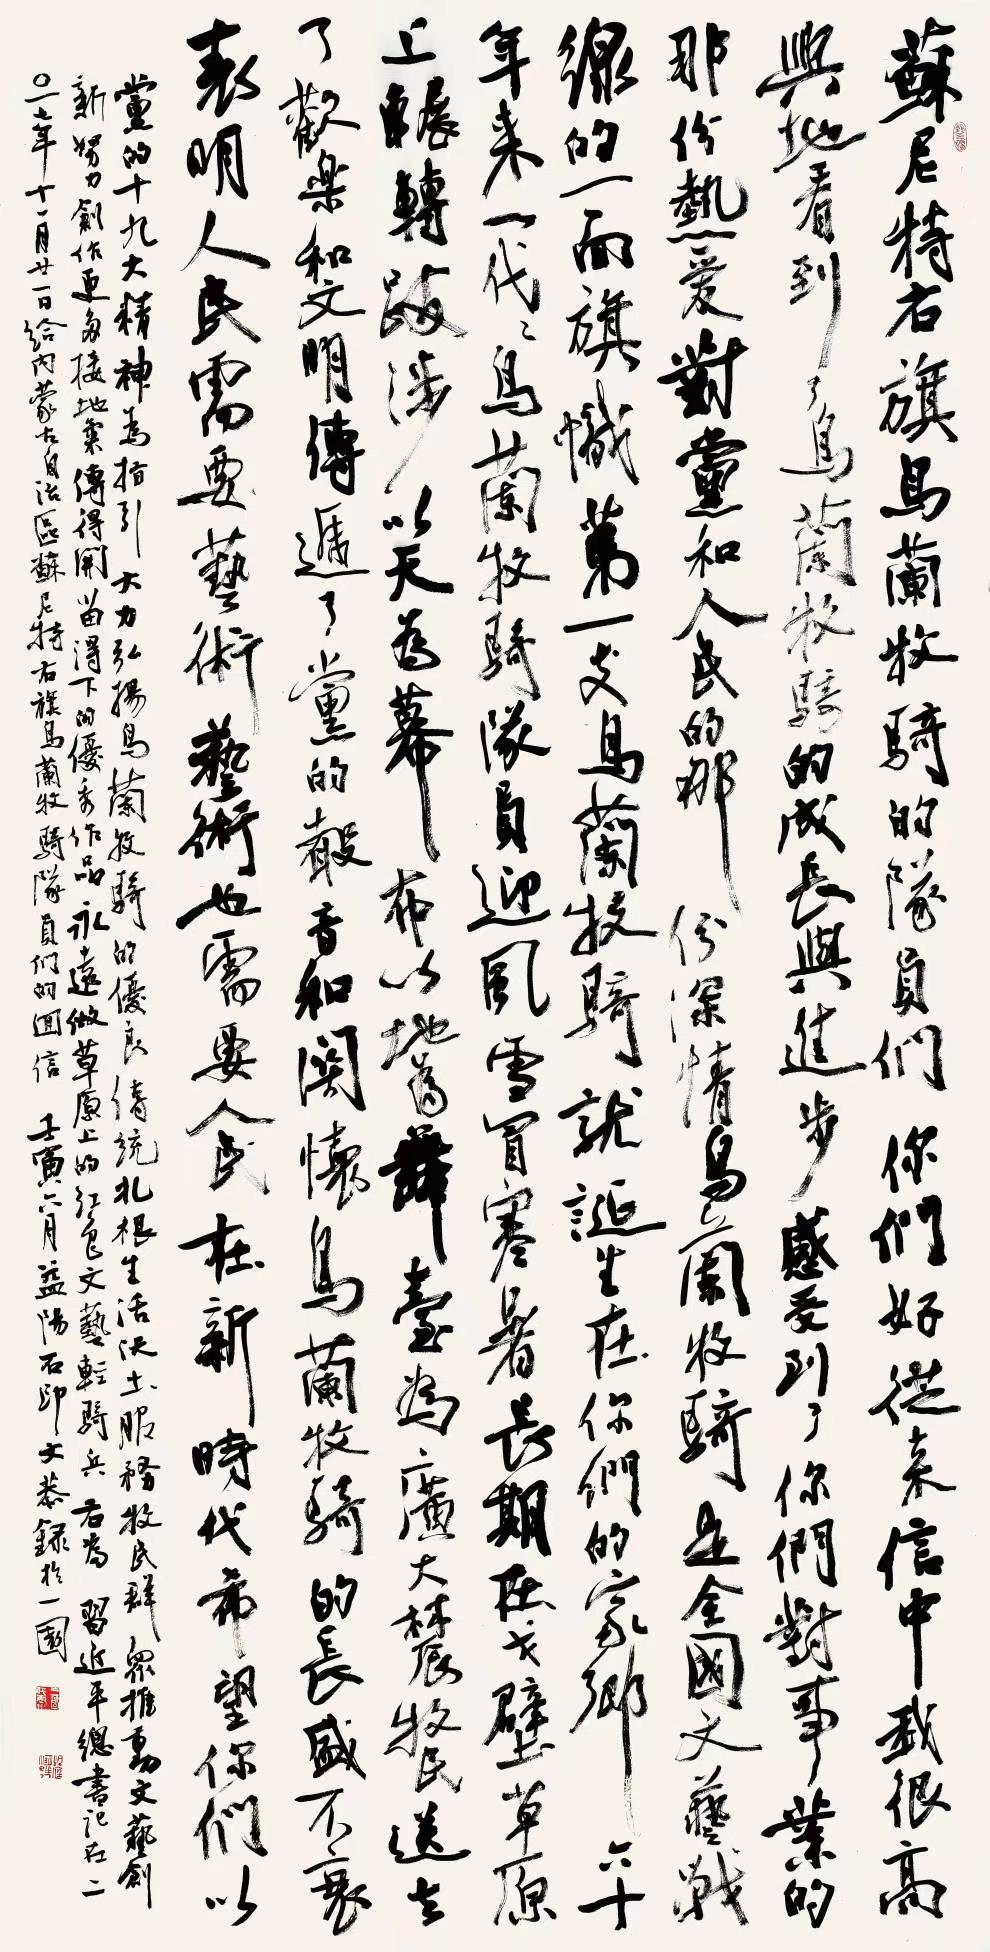 蘇尼特右旗烏蘭牧騎的隊員們你們好從來信中我很高
興地看到了烏蘭牧騎的成長與進步感受到了你們對事業的
那份熱愛對黨和人民的那份深情烏蘭牧騎是全國文藝戰
線的一面旗幟第一支烏蘭牧騎就誕生在你們的家鄉六十
年來一代〻烏蘭牧騎隊員迎風雪冒寒暑長期在戈壁草原
上輾轉跋涉以天為幕布以地為舞臺為廣大農牧民送去
了歡樂和文明傳遞了黨的聲音和關懷烏蘭牧騎的長盛不衰
表明人民需要藝術藝術也需要人民在新時代希望你們以
黨的十九大精神為指引大力弘揚烏蘭牧騎的優良傳統扎根生活沃土服務牧民群眾推動文藝創
新努力創作更多接地氣傳得開留得下的優秀作品永遠做草原上的紅色文藝輕騎兵右為習近平總書記在二
〇一七年十一月廿一日給內蒙古自治區蘇尼特右旗烏蘭牧騎隊員們的回信壬寅六月益陽石印文恭錄於一園